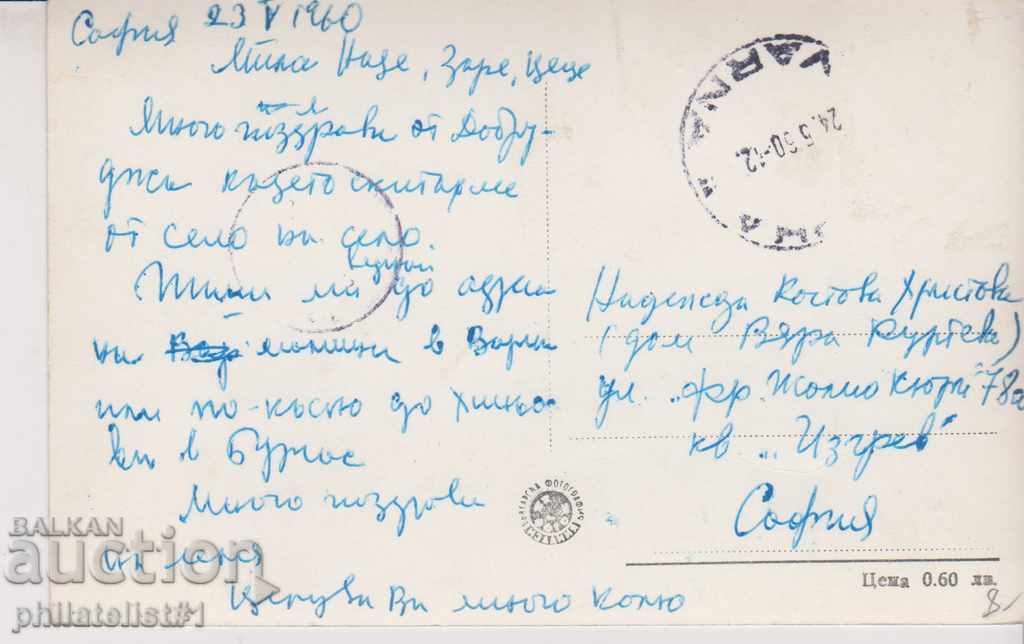 София 23 V 1960
Мила Наде, Заре, Цеце
Много поздрави от Добру-
джа където скитарме
от село на село.
Пиши ми веднъй до адрса
на в Варна
или по-късно до
в Бургас
Много поздрави
на леля
Целува Ви много Колю
VARNA
24.5.60-12.
Надежда Костова Христова
(дом Вяра Куртева)
ул. „Фр. Жолио Кюри" 78а
кв. „Изгрев"
София
Цена 0.60 лв.
8-
BALKAN
auction
philatelist#1